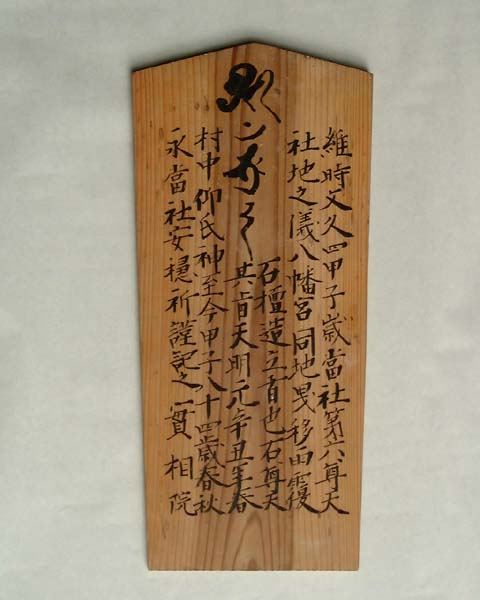 維時文久四甲子歳當社第六尊天
社地之儀八幡宮同地曳移再覆
石檀造立者也石尊天
其肯天明元辛丑年春
村中仰氏神至今甲子八十四歳春秋
永當社安穏祈謹記之實相院